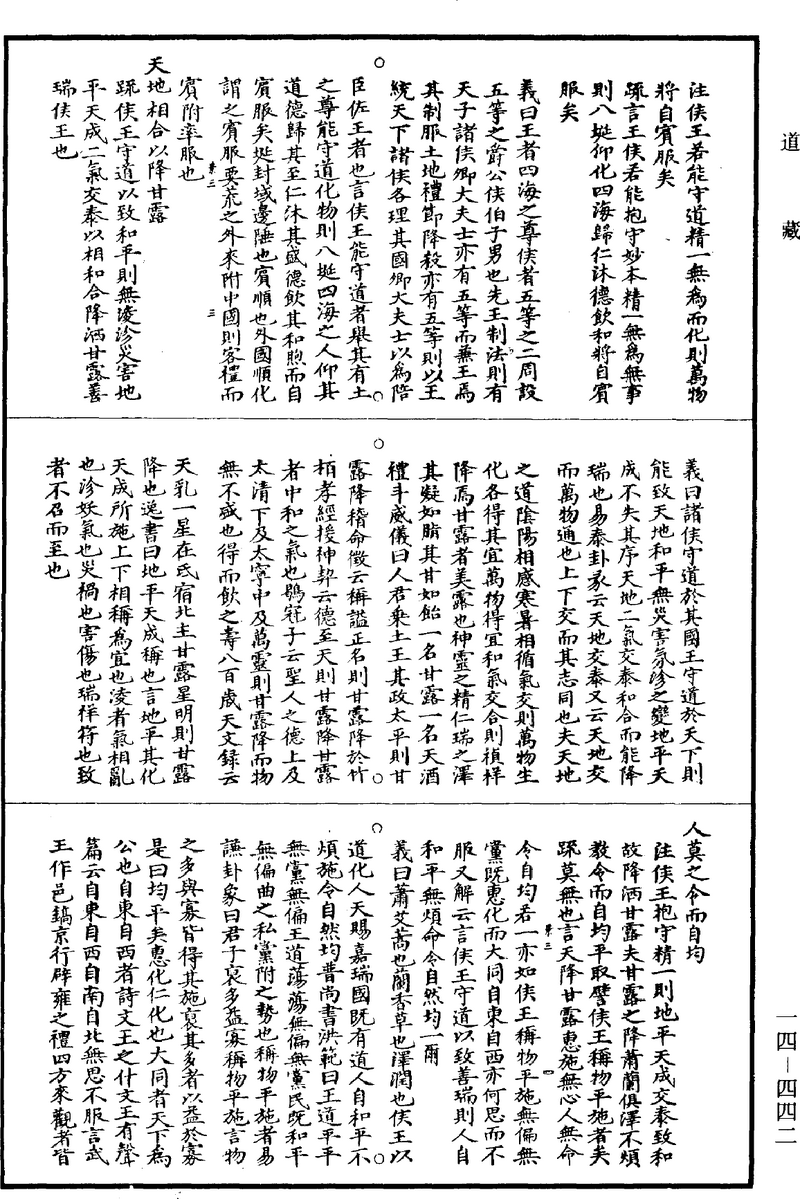 道藏
注侯王若能守道精一無為而化則萬物
將自賓服矣
疏言王侯若能抱守妙本精一無為無事
則八埏仰化四海歸仁沐德飲和將自賓
服矣
義曰王者四海之尊侯者五等之二周設
五等之爵公侯伯子男也先王制法則有
天子諸侯卿大夫士亦有五等而兼王焉
其制服土地禮節降殺亦有五等則以王
統天下諸侯各理其國卿大夫士以為陪
臣佐王者也言侯王能守道者舉其有土
之尊能守道化物則八埏四海之人仰其
道德歸其至仁沐其盛德飲其和煦而自
賓服矣埏封域邊陲也賓順也外國順化
謂之賓服要荒之外來附中國則客禮而
賓附率服也
天地相合以降甘露
疏侯王守道以致和平則無淩沴災害地
平天成二氣交泰以相和合降洒甘露善
瑞侯王也
義曰諸侯守道於其國王守道於天下則
能致天地和平無災害氛沴之變地平天
成不失其序天地二氣交泰和合而能降
瑞也易泰卦彖云天地交泰又云天地交
而萬物通也上下交而其志同也夫天地
之道陰陽相感寒暑相循氣交則萬物生
化各得其宜萬物得宜和氣交合則禎祥
降焉甘露者美露也神靈之精仁瑞之澤
其凝如脂其甘如飴一名甘露一名天酒
禮斗威儀曰人君乗土王其政太平則甘
露降稽命徵云稱謚正名則甘露降於竹
栢孝經援神契云德至天則甘露降甘露
者中和之氣也鶡冠子云聖人之德上及
太清下及太寧中及萬靈則甘露降而物
無不盛也得而飲之壽八百歲天文録云
天乳一星在氐宿北主甘露星明則甘露
降也逸書曰地平天成稱也言地平其化
天成所施上下相稱為宜也淩者氣相亂
也沴妖氣也災禍也害傷也瑞祥符也致
者不召而至也
人莫之令而自均
注侯王抱守精一則地平天成交泰致和
故降洒甘露夫甘露之降蕭蘭俱澤不煩
教令而自均平取譬侯王稱物平施者矣
疏莫無也言天降甘露惠施無心人無命
令自均若一亦如侯王稱物平施無偏無
黨既惠化而大同自東自西亦何思而不
服又解云言侯王守道以致善瑞則人自
和平無煩命令自然均一爾
義曰蕭艾蒿也蘭香草也澤潤也侯王以
道化人天賜嘉瑞國既有道人自和平不
煩施令自然均普尚書洪範曰王道平平
無黨無偏王道蕩蕩無偏無黨民既和平
無偏曲之私黨附之勢也稱物平施者易
謙卦象曰君子裒多益寡稱物平施言物
之多與寡皆得其施裒其多者以益於寡
是曰均平矣惠化仁化也大同者天下為
公也自東自西者詩文王之什文王有聲
篇云自東自西自南自北無思不服言武
王作邑鎬京行辟雍之禮四方來觀者皆
一四－四四二